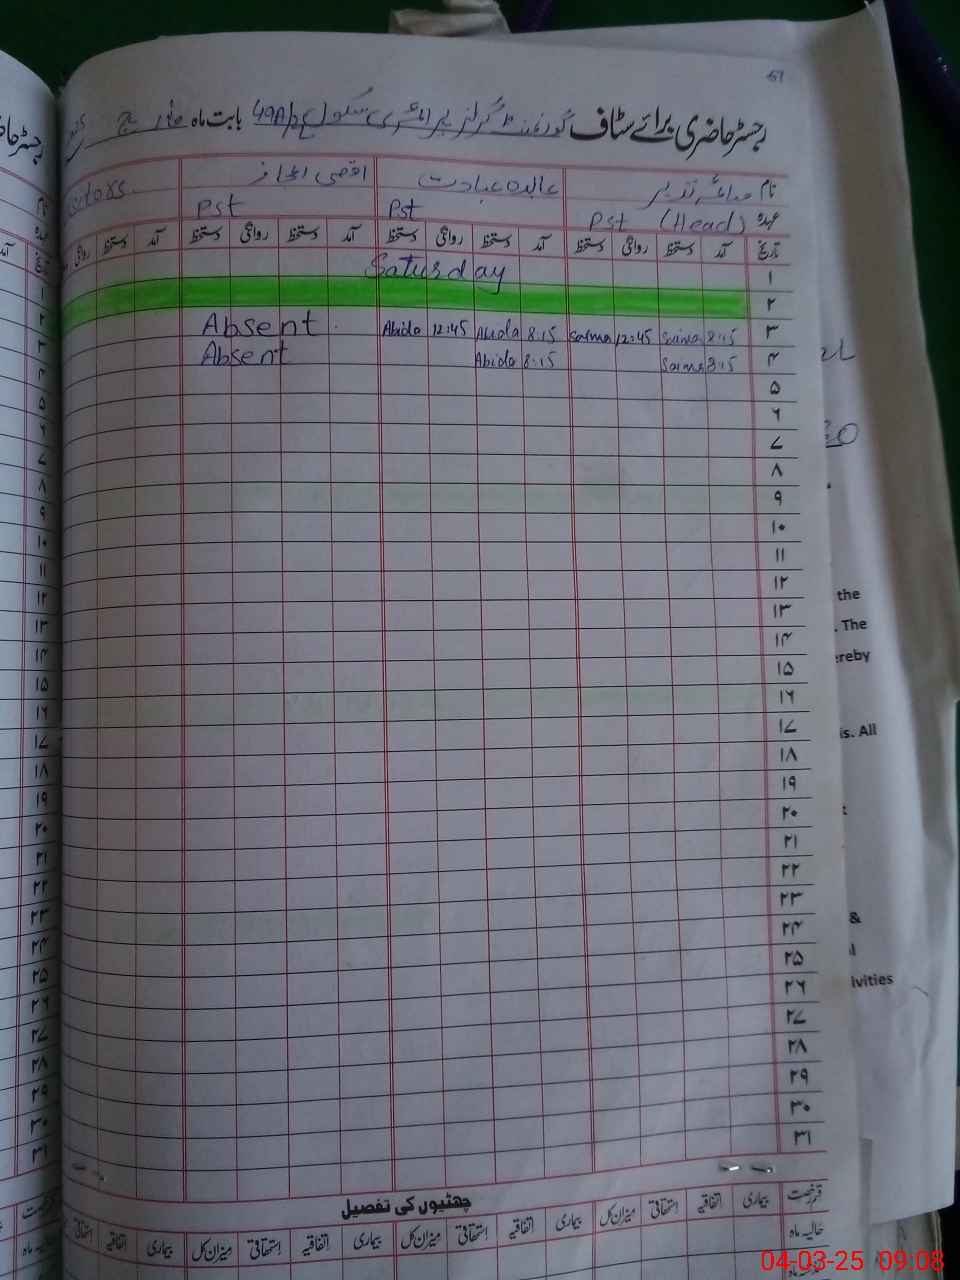 51
رجسٹر حاضری برائے سٹاف گورنمنٹ گرلز پرائمری سکول 49A/P بابت ماہ مارچ
نام صائمہ نذیر عابدہ عبادت اقصی اعجاز
عہدہ Pst (Head) Pst Pst
تاریخ آمد دستخط روانگی دستخط آمد دستخط روانگی دستخط آمد دستخط روانگی دستخط آمد دستخط روانگی
۱ Saturday
۲
۳ 8:15 Saima 12:45 Saima 8:15 Abida 12:45 Abida Absent
۴ 8:15 Saima 8:15 Abida Absent
۵
۶
۷
۸
۹
۱۰
۱۱
۱۲
۱۳
۱۴
۱۵
۱۶
۱۷
۱۸
۱۹
۲۰
۲۱
۲۲
۲۳
۲۴
۲۵
۲۶
۲۷
۲۸
۲۹
۳۰
۳۱
چھٹیوں کی تفصیل
قسم رخصت بیماری اتفاقیہ استحقاقی میزان کل بیماری اتفاقیہ استحقاقی میزان کل بیماری اتفاقیہ استحقاقی میزان کل بیماری اتفاقیہ استحقاقی
حالیہ ماہ
the
. The
is. All
&
04-03-25 09:08